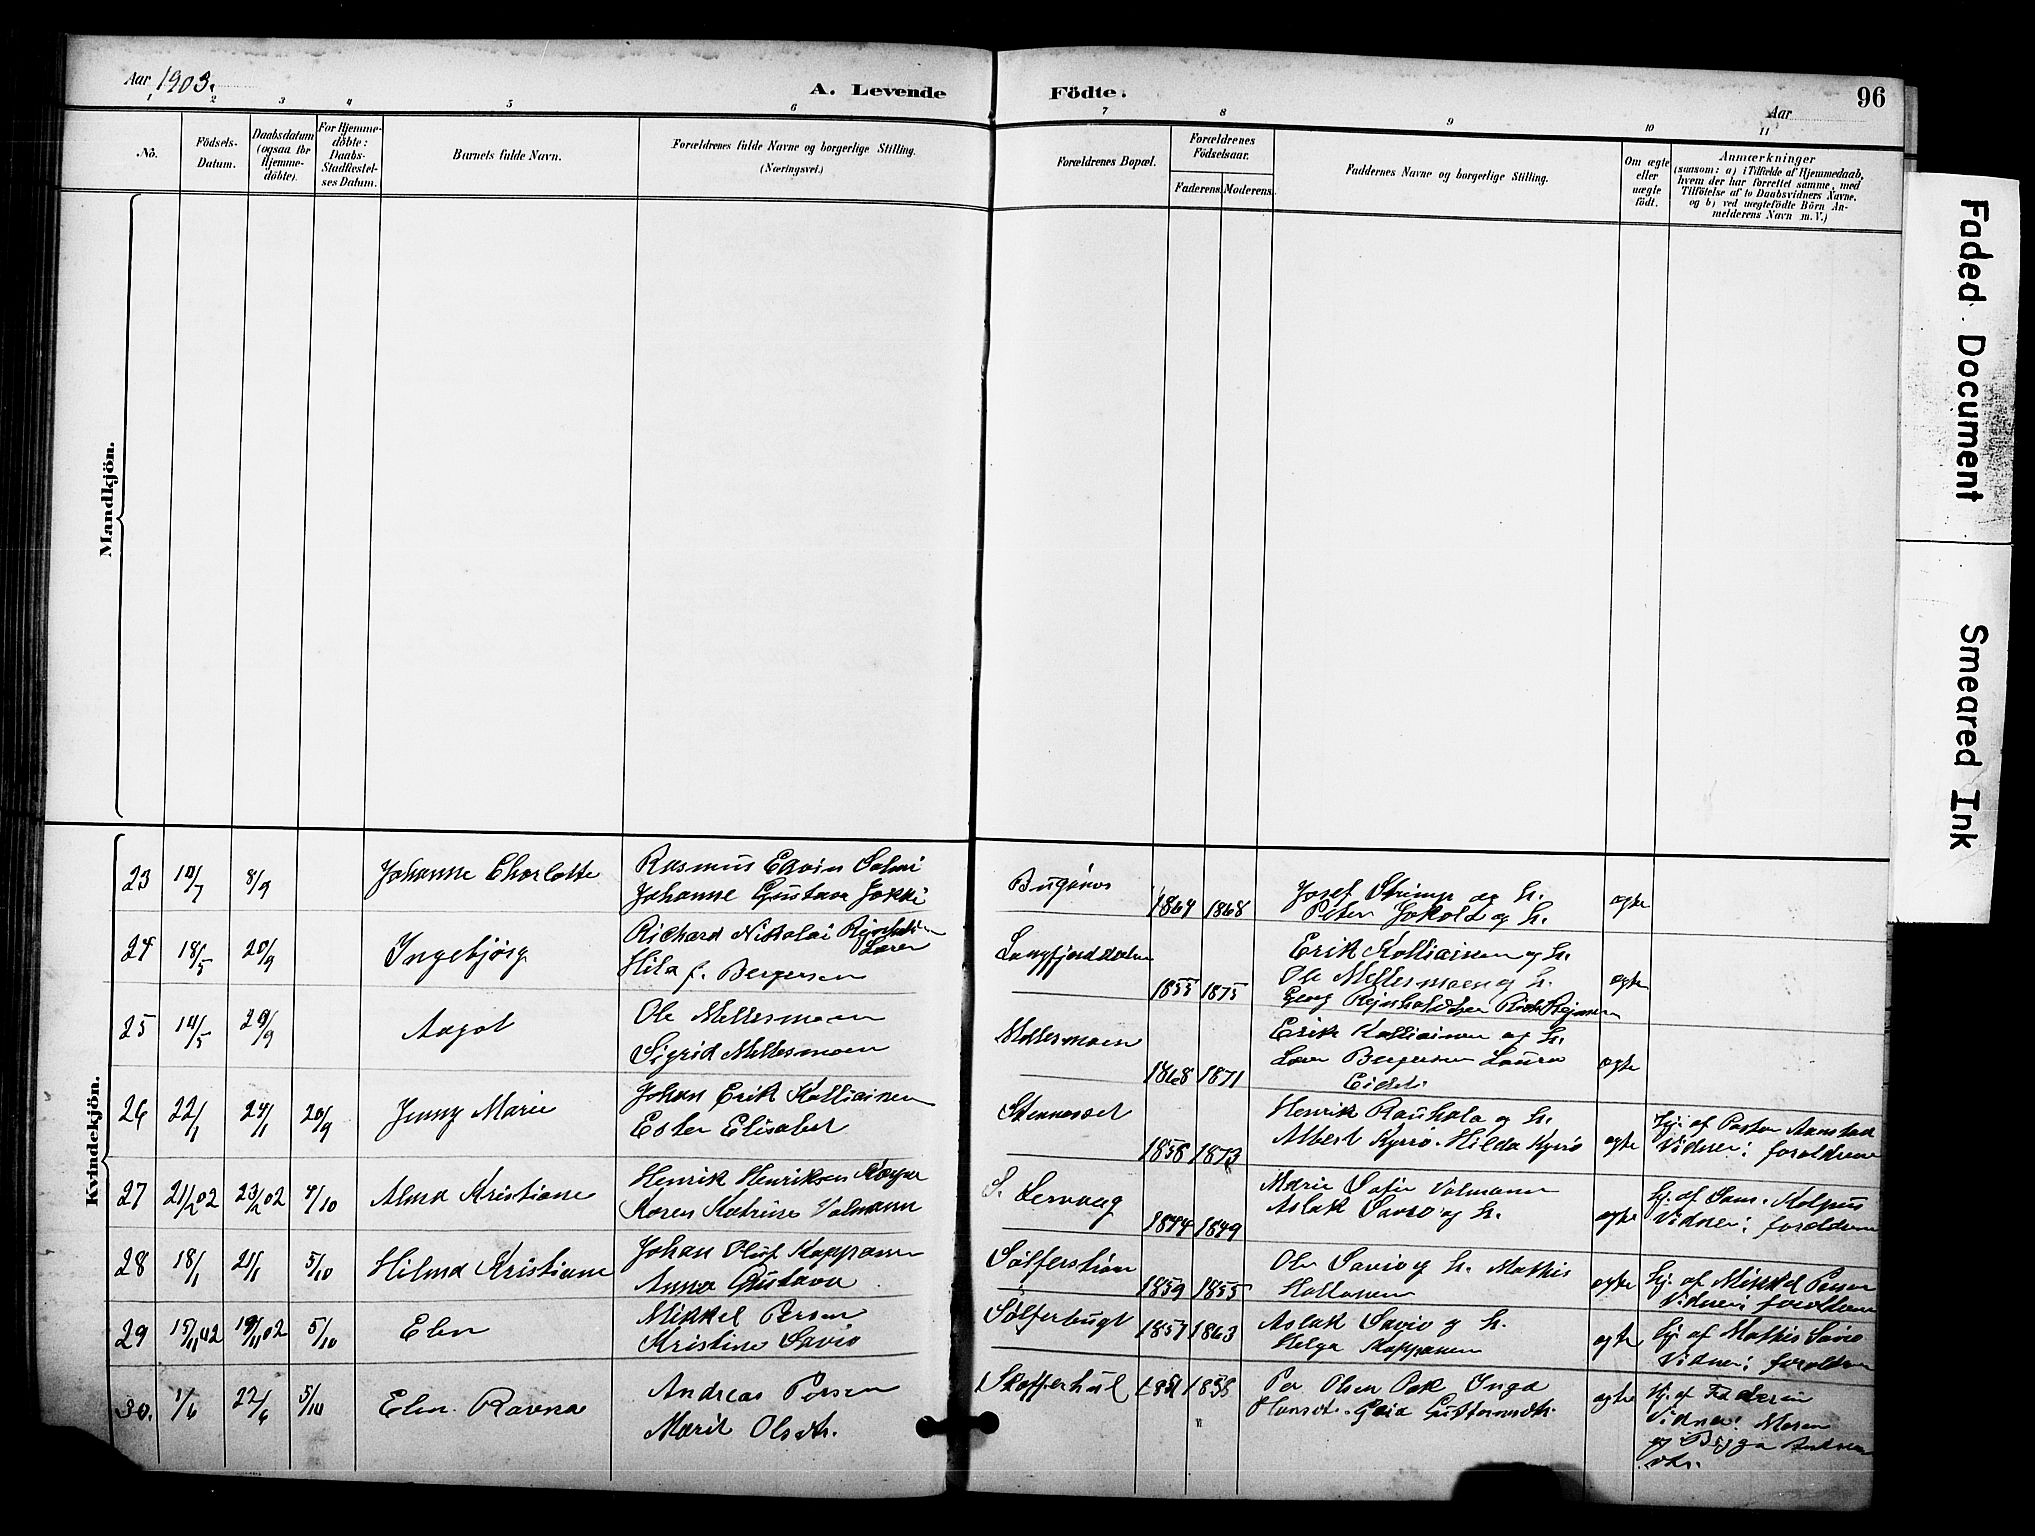 Aar 1903.
A. Levende Födte.
Aar
96
1 2 3 4 5 6 7 8 9 10 11
No.
Födsels-Datum.
Daabsdatum (ogsaa for Hjemme-döbte).
For Hjemme-döbte: Daabs-Stadfæstel-ses Datum.
Barnets fulde Navn.
Forældrenes fulde Navne og borgerlige Stilling.
(Næringsvei.)
Forældrenes Bopæl.
Forældrenes Födselsaar.
Faderens. Moderens.
Faddernes Navne og borgerlige Stilling.
Om ægte eller uægte födt.
Anmærkninger
(saasom: a) i Tilfælde af Hjemmedaab,
hvem der har forrettet samme, med
Tilföielse af to Daabsvidners Navne.
og b) ved uægtefödte Börn An-
melderens Navn m. V.)
Mandkjön.
Kvindekjön.
23 10/7 8/9 Johanne Charlotte
Rasmus Edvin Salmi
Johanne Gustava Jokki
Bugønes 1864 1868
Josef Strimp og h.
Peter Jokola og h.
ægte
24 18/5 20/9 Ingebjørg
Richard Nikolai
Hila f. Bergersen
Langfjorddalen 1855 1875
Erik Kalliainen og h.
Ole Mellesmoen og h.
Georg
ægte
25 14/5 20/9 Aagot
Ole Mellesmoen
Sigrid Mellesmoen
Mellesmoen 1868 1871
Erik Kalliainen og h.
Lars Bergersen Laura
ægte
26 22/1 24/1 20/9 Jenny Marie
Johan Erik Kalliainen
Ester Elisabet
1858 1873
Henrik Rauhala og h.
Albert Kyrrö. Hilda Kyrö
ægte
Hj. af Pastor Aanstad
Vidner: forældrene
27 21/2 02 23/2 02 4/10 Alma Kristiane
Henrik Henriksen
Karen Katrine Valmann
S. Lervaag 1844 1849
Marie Sofie Valmann
Aslak Savio og h.
ægte
Hj. af Sam. Kolpus
Vidner: forældrene
28 18/1 21/1 5/10 Hilma Kristiane
Johan Oluf Kappanen
Anna Gustava
1859 1855
Ole Savio og h. Mathis
Hallonen
ægte
Hj. af Mikkel Persen
Vidner: forældrene
29 15/11 02 19/11 02 5/10 Elen
Mikkel Persen
Kristine Savio
Sølferbugt 1857 1863
Aslak Savio og h.
Helga Kappanen
ægte
Hj. af Mathis Savio
Vidner: forældrene
30. 1/6 22/6 5/10 Elen Ravna
Andreas Persen
Marit Olsdtr.
Skafferhul 1851 1858
Per Olsen Inga
Hansdt.
ægte
Hj. af Faderen
Vidner: Moren
og Bigga
Faded Document
Smeared Ink